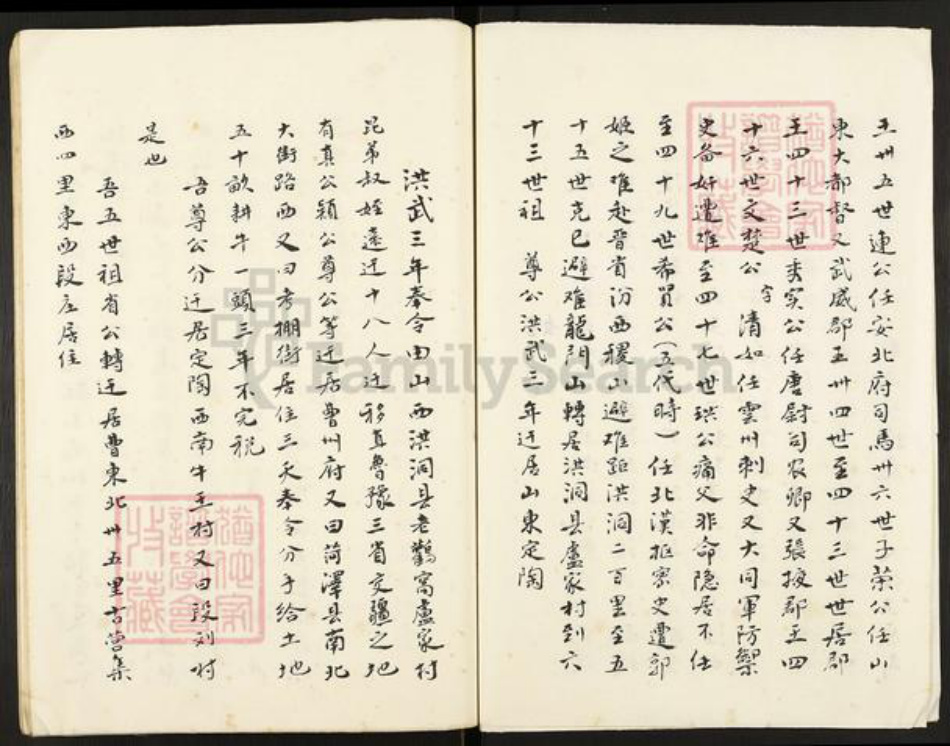 王卅五世連公任安北府司馬卅六世子榮公任山
東大都督又武威郡王卅四世至四十三世世居郡
王四十三世秀实公任唐尉司农卿又張掖郡王四
十六世文楚公字清如任雲州刺史又大同軍防禦
史备奸遭难至四十七世珙公痛父非命隐居不仕
至四十九世希買公(五代時)任北漢樞密史遭郭
姬之难赴晋省汾西稷山避难距洪洞二百里至五
十五世克已避难龍門山轉居洪洞县盧家村到六
十三世祖 尊公洪武三年迁居山東定陶
洪武三年奉令由山西洪洞县老鸛窩盧家村
昆弟叔姪遠迁十八人迁移直魯豫三省交疆之地
有真公穎公尊公等迁居曹州府又曰菏澤县南北
大街路西又曰考棚街居住三天奉令分于给土地
五十畝耕牛一頭三年不完税
吾尊公分迁居定陶西南牛王村又曰段刘村
是也
吾五世祖省公轉迁居曹東北卅五里古营集
西四里東西段庄居住
FamilySearch